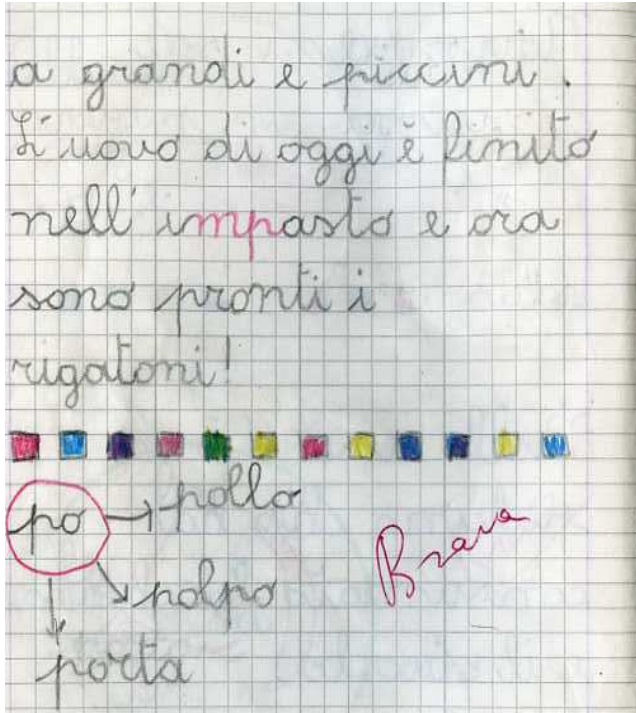 a grandi e piccini.
L'uovo di oggi è finito
nell'impasto e ora
sono pronti i
rigatoni!
po → pollo
Brava
polpo
porta